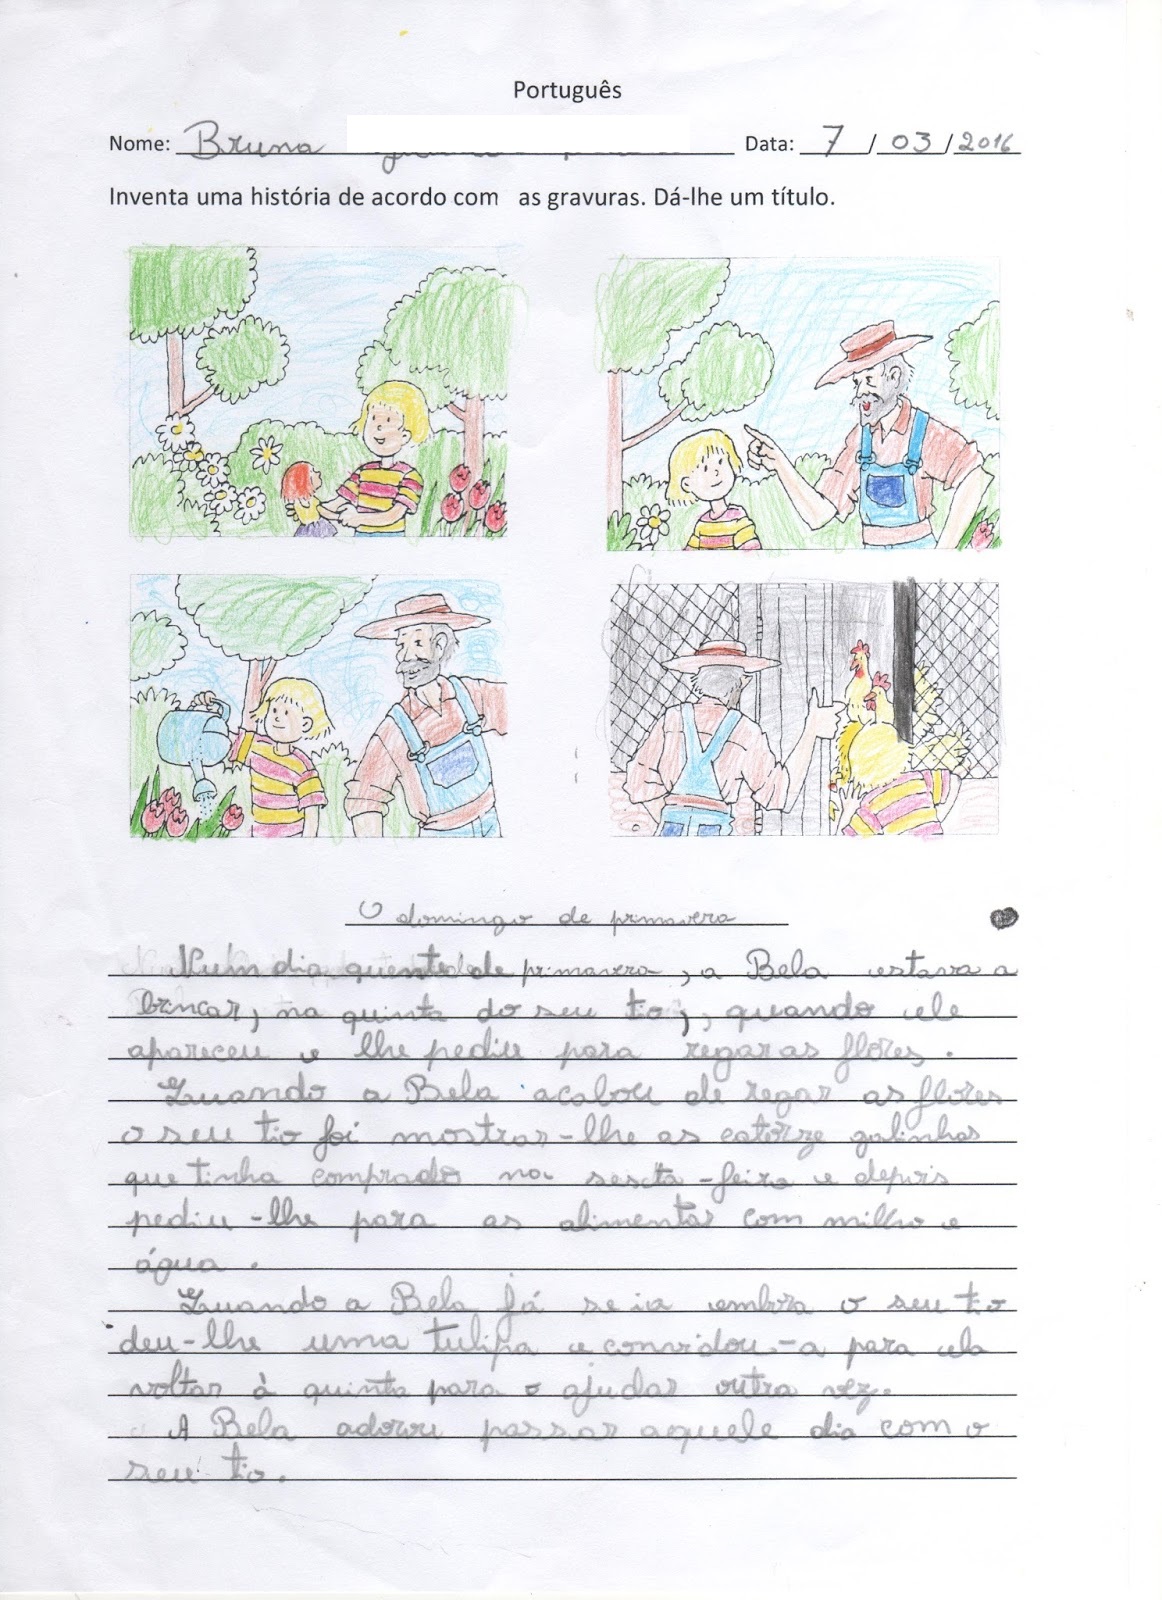 Português
Nome: Bruna Data: 7/03/2016
Inventa uma história de acordo com as gravuras. Dá-lhe um título.
O domingo de primavera
Num dia quente de primavera, a Bela estava a
brincar, na quinta do seu tio, quando ele
apareceu e lhe pediu para regar as flores.
Quando a Bela acabou de regar as flores
o seu tio foi mostrar-lhe as catorze galinhas
que tinha comprado na sexta-feira e depois
pediu-lhe para as alimentar com milho e
água.
Quando a Bela já se ia embora o seu tio
deu-lhe uma tulipa e convidou-a para ela
voltar à quinta para o ajudar outra vez.
A Bela adorou passar aquele dia com o
seu tio.